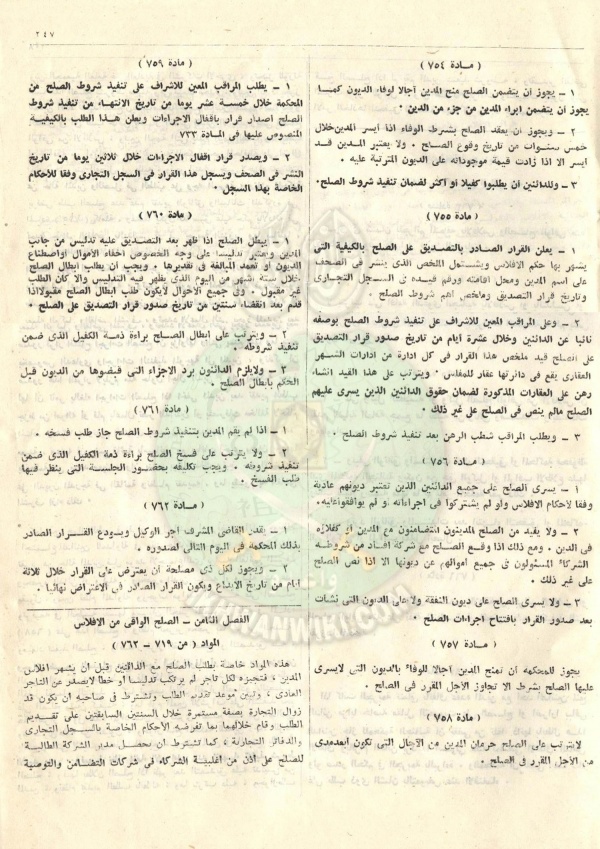 ٢٤٧
( مادة ٧٥٤ )
١ – يجوز أن يتضمن الصلح منح المدين آجالا لوفاء الديون كما
يجوز أن يتضمن ابراء المدين من جزء من الدين .
٢ – ويجوز أن يعقد الصلح بشرط الوفاء اذا أيسر المدين خلال
خمس سنوات من تاريخ وقوع الصلح . ولا يعتبر المدين قد
أيسر الا اذا زادت قيمة موجوداته على الديون المترتبة عليه .
٣ – وللدائنين أن يطلبوا كفيلا أو أكثر لضمان تنفيذ شروط الصلح .
( مادة ٧٥٥ )
١ – يعلن القرار الصادر بالتصديق على الصلح بالكيفية التى
يشهر بها حكم الافلاس ويشتمل الملخص الذى ينشر فى الصحف
على اسم المدين ومحل اقامته ورقم قيده فى السجل التجارى
وتاريخ قرار التصديق وملخص أهم شروط الصلح .
٢ – وعلى المراقب المعين للاشراف على تنفيذ شروط الصلح بوصفه
نائبا عن الدائنين وخلال عشرة أيام من تاريخ صدور قرار التصديق
على الصلح قيد ملخص هذا القرار فى كل ادارة من ادارات الشهر
العقارى يقع فى دائرتها عقار للمفلس . ويترتب على هذا القيد انشاء
رهن على العقارات المذكورة لضمان حقوق الدائنين الذين يسرى عليهم
الصلح مالم ينص فى الصلح على غير ذلك .
٣ – ويطلب المراقب شطب الرهن بعد تنفيذ شروط الصلح .
( مادة ٧٥٦ )
١ – يسرى الصلح على جميع الدائنين الذين تعتبر ديونهم عادية
وفقا لاحكام الافلاس ولو لم يشتركوا فى اجراءاته أو لم يوافقوا عليه .
٢ – ولا يفيد من الصلح المدينون المتضامنون مع المدين أو كفلاؤه
فى الدين . ومع ذلك اذا وقع الصلح مع شركة أفاد من شروطه
الشركاء المسئولون فى جميع أموالهم عن ديونها الا اذا نص الصلح
على غير ذلك .
٣ – ولا يسرى الصلح على ديون النفقة ولا على الديون التى نشأت
بعد صدور القرار بافتتاح اجراءات الصلح .
( مادة ٧٥٧ )
يجوز للمحكمة أن تمنح المدين آجالا للوفاء بالديون التى لا يسرى
عليها الصلح بشرط ألا تجاوز الأجل المقرر فى الصلح .
( مادة ٧٥٨ )
لا يترتب على الصلح حرمان المدين من الآجال التى تكون أبعد مدى
من الأجل المقرر فى الصلح .
( مادة ٧٥٩ )
١ – يطلب المراقب المعين للاشراف على تنفيذ شروط الصلح من
المحكمة خلال خمسة عشر يوما من تاريخ الانتهاء من تنفيذ شروط
الصلح اصدار قرار باقفال الاجراءات ويعلن هذا الطلب بالكيفية
المنصوص عليها فى المادة ٧٣٣
٢ – ويصدر قرار اقفال الاجراءات خلال ثلاثين يوما من تاريخ
النشر فى الصحف ويسجل هذا القرار فى السجل التجارى وفقا للأحكام
الخاصة بهذا السجل .
( مادة ٧٦٠ )
١ – يبطل الصلح اذا ظهر بعد التصديق عليه تدليس من جانب
المدين ويعتبر تدليسا على وجه الخصوص اخفاء الأموال أو اصطناع
الديون أو تعمد المبالغة فى تقديرها . ويجب أن يطلب ابطال الصلح
خلال ستة أشهر من اليوم الذى يظهر فيه التدليس والا كان الطلب
غير مقبول . وفى جميع الأحوال لا يكون طلب ابطال الصلح مقبولا اذا
قدم بعد انقضاء سنتين من تاريخ صدور قرار التصديق على الصلح .
٢ – ويترتب على ابطال الصلح براءة ذمة الكفيل الذى ضمن
تنفيذ شروطه .
٣ – ولا يلزم الدائنون برد الاجزاء التى قبضوها من الديون قبل
الحكم بابطال الصلح .
( مادة ٧٦١ )
١ – اذا لم يقم المدين بتنفيذ شروط الصلح جاز طلب فسخه .
٢ – ولا يترتب على فسخ الصلح براءة ذمة الكفيل الذى ضمن
تنفيذ شروطه . ويجب تكليفه بحضور الجلسة التى ينظر فيها
طلب الفسخ .
( مادة ٧٦٢ )
١ – يقدر القاضى المشرف أجر الوكيل ويودع القرار الصادر
بذلك المحكمة فى اليوم التالى لصدوره .
٢ – ويجوز لكل ذى مصلحة أن يعترض على القرار خلال ثلاثة
أيام من تاريخ الايداع ويكون القرار الصادر فى الاعتراض نهائيا .
الفصل الثامن – الصلح الواقى من الافلاس
المواد ( من ٧١٩ – ٧٦٢ )
هذه المواد خاصة بطلب الصلح مع الدائنين قبل أن يشهر افلاس
المدين ، فتجيزه لكل تاجر لم يرتكب تدليسا أو خطأ لا يصدر عن التاجر
العادى ، وتبين موعد تقديم الطلب وتشترط فى صاحبه أن يكون قد
زوال التجارة بصفة مستمرة خلال السنتين السابقتين على تقديم
الطلب وقام خلالهما بما تفرضه الأحكام الخاصة بالسجل التجارى
والدفاتر التجارية ، كما تشترط أن يحصل مدير الشركة الطالبة
للصلح على أذن من أغلبية الشركاء فى شركات التضامن والتوصية